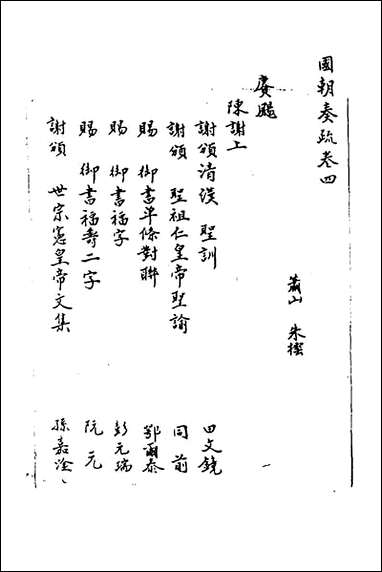 國朝奏疏卷四
蕭山 朱
賡颺
陳謝上
謝頒清漢 聖訓 田文鏡
謝頒 聖祖仁皇帝聖諭 同前
賜 御書單條對聯 鄂爾泰
賜 御書福字 彭元瑞
賜 御書福壽二字 阮元
謝頒 世宗憲皇帝文集 孫嘉淦